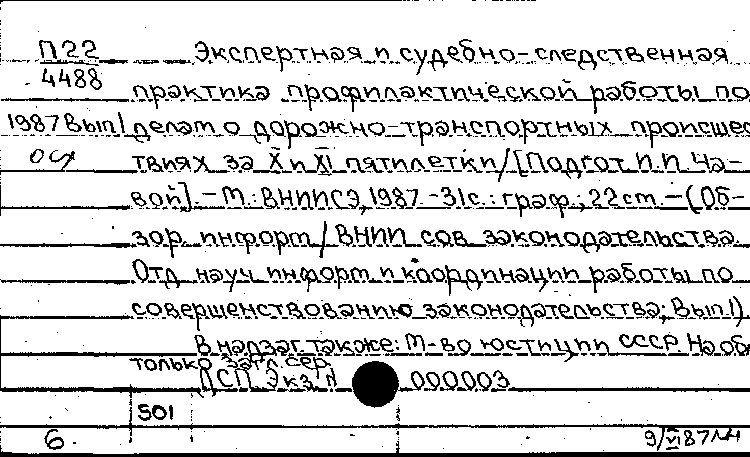 П22 Экспертная и судебно-следственная
4488 практика профилактической работы по
1987 Вып1 делам о дорожно-транспортных происшес
твиях за X и XI пятилетки/[Подгот И.П. Ча-
вой]. - М.: ВНИИСЭ, 1987. - 31с.: граф.; 22см. - (Об-
зор. информ/ВНИИ сов законодательства.
Отд науч информ и координации работы по
совершенствованию законодательства; Вып1)
В надзаг также: М-во юстиции СССР. На об
только загл. сер.
ДСП. Экз. N 000003
501
6. 9/VI87